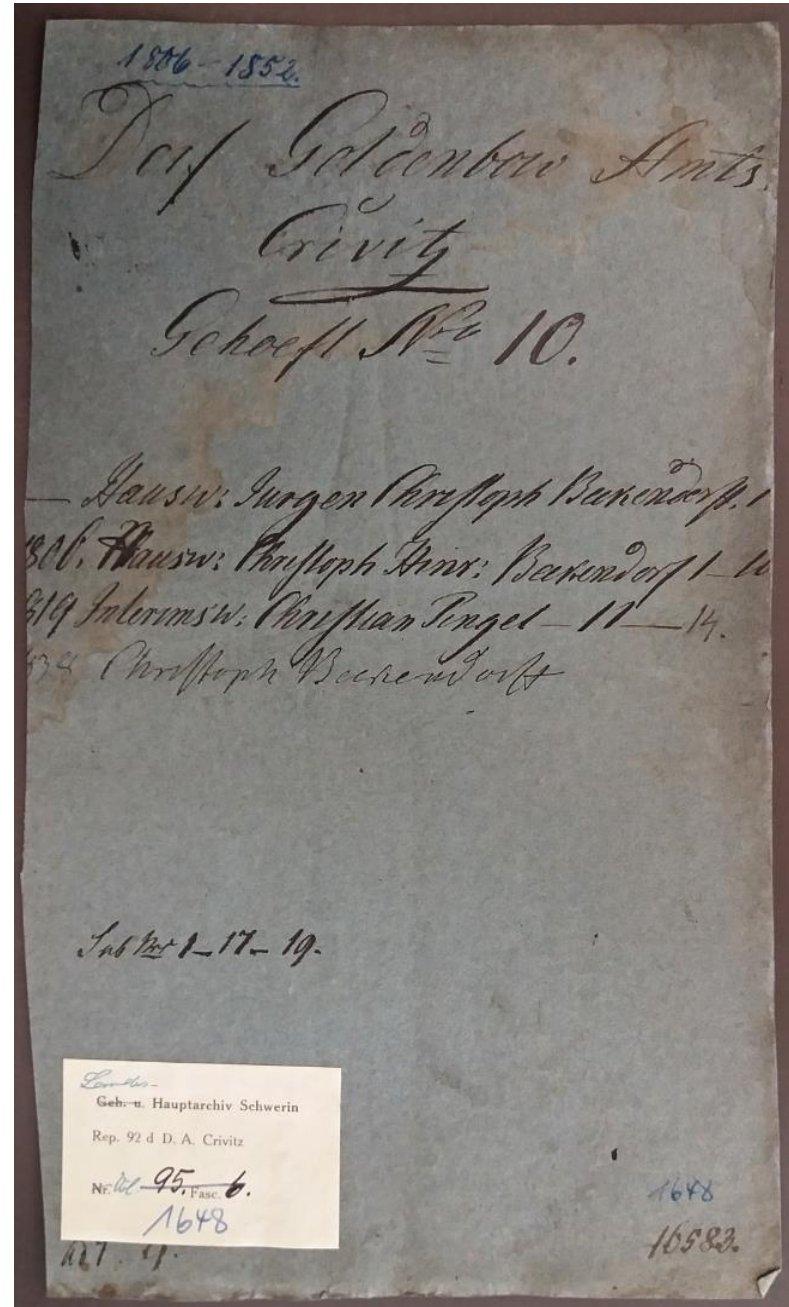 1806–1852.
Dorf Goldenbow Amts
Crivitz
Gehoeft No 10.
— Hausw: Jurgen Christoph Beckendorff. 1
1806. Hausw: Christoph Hinr: Beckendorf 1–10
1819 Interimsw: Christian Pingel – 11 — 14.
Christoph Beckendorff
Sub Nr 1–17–19.
Landes-
Geh. u. Hauptarchiv Schwerin
Rep. 92 d D. A. Crivitz
Nr. 95. Fasc. 6.
1648
1648
16583.